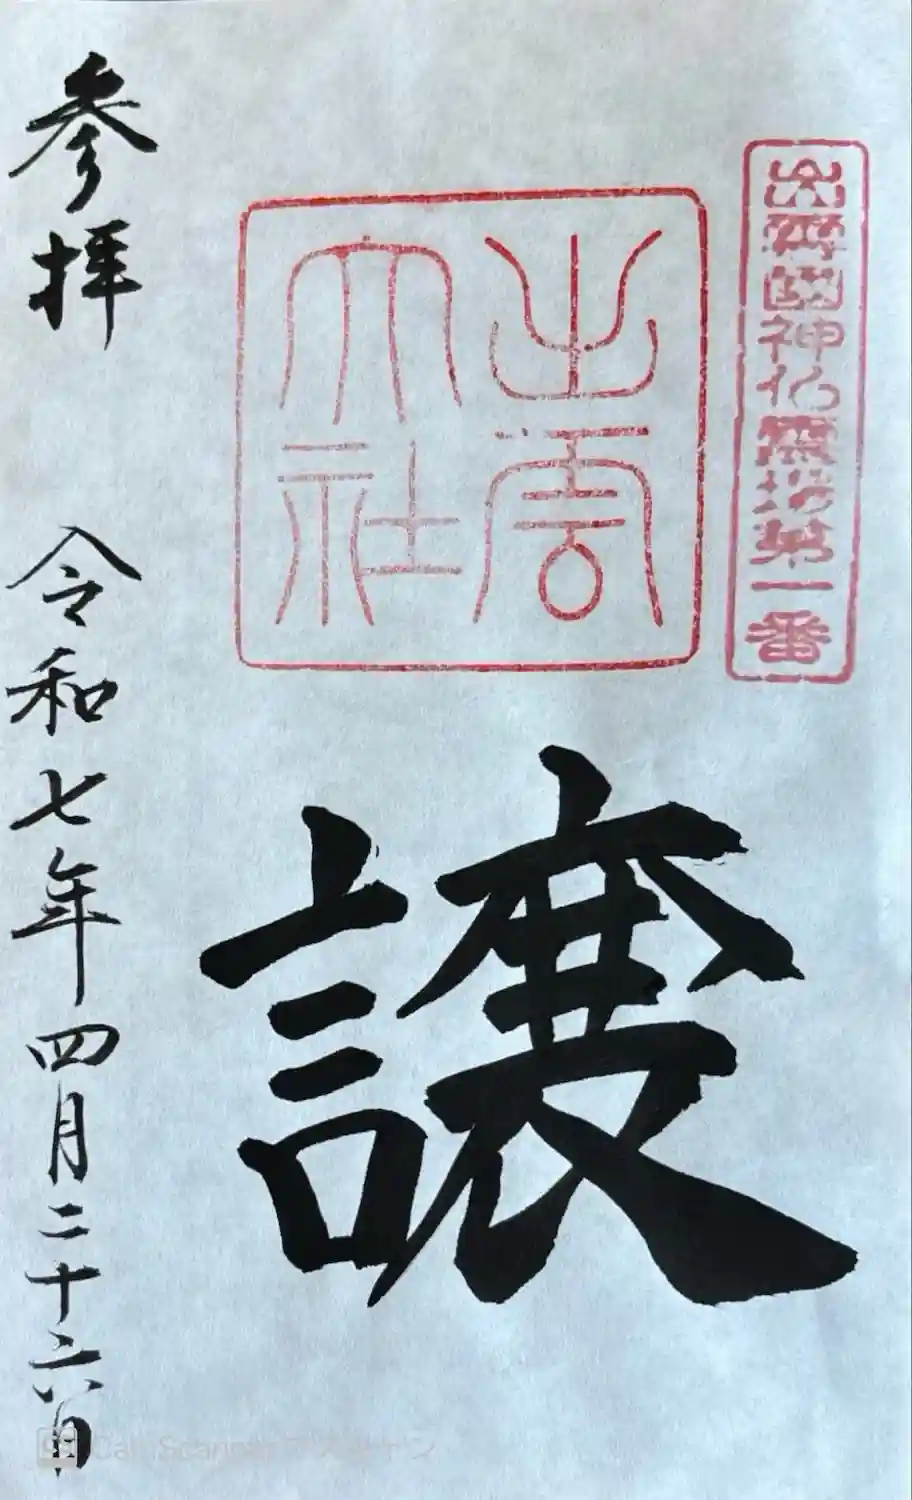 出雲國神仏霊場第一番
出雲
大社
譲
参拝
令和七年四月二十六日
CamScannerでスキャン